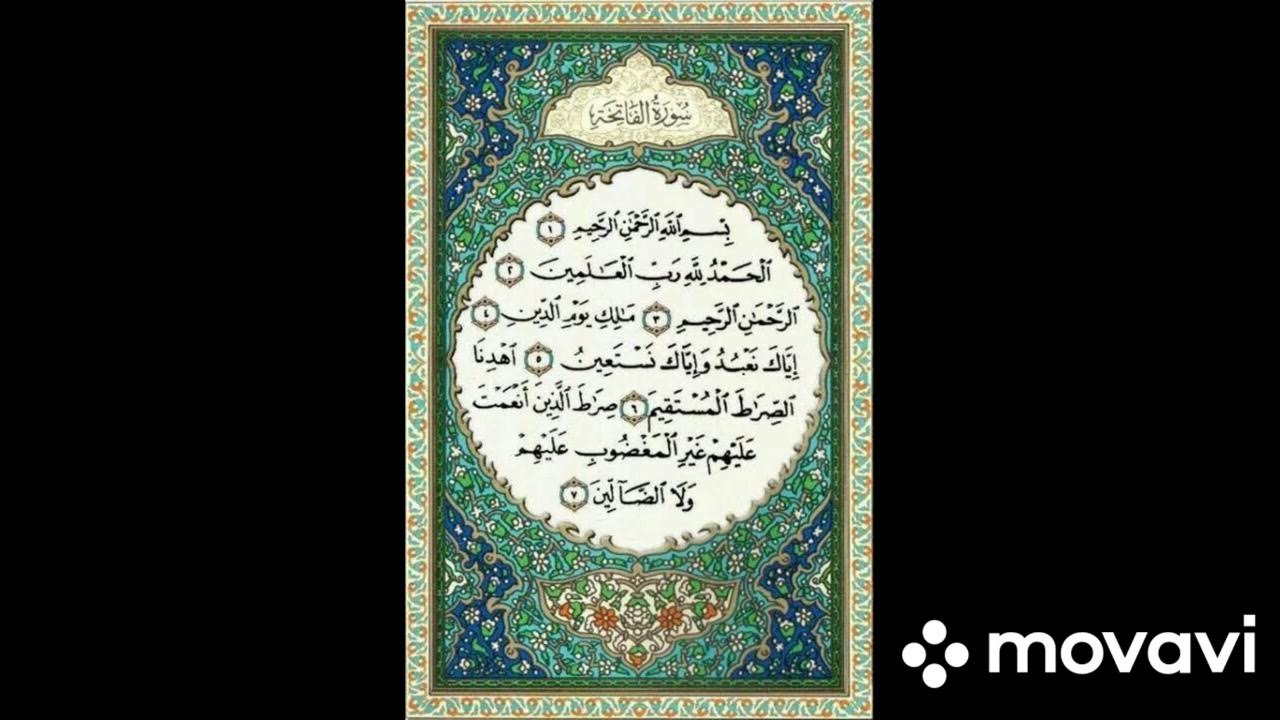 سُورَةُ الفَاتِحَةِ
بِسْمِ ٱللَّهِ ٱلرَّحْمَٰنِ ٱلرَّحِيمِ ١
ٱلْحَمْدُ لِلَّهِ رَبِّ ٱلْعَٰلَمِينَ ٢
ٱلرَّحْمَٰنِ ٱلرَّحِيمِ ٣ مَٰلِكِ يَوْمِ ٱلدِّينِ ٤
إِيَّاكَ نَعْبُدُ وَإِيَّاكَ نَسْتَعِينُ ٥ ٱهْدِنَا
ٱلصِّرَٰطَ ٱلْمُسْتَقِيمَ ٦ صِرَٰطَ ٱلَّذِينَ أَنْعَمْتَ
عَلَيْهِمْ غَيْرِ ٱلْمَغْضُوبِ عَلَيْهِمْ
وَلَا ٱلضَّآلِّينَ ٧
movavi